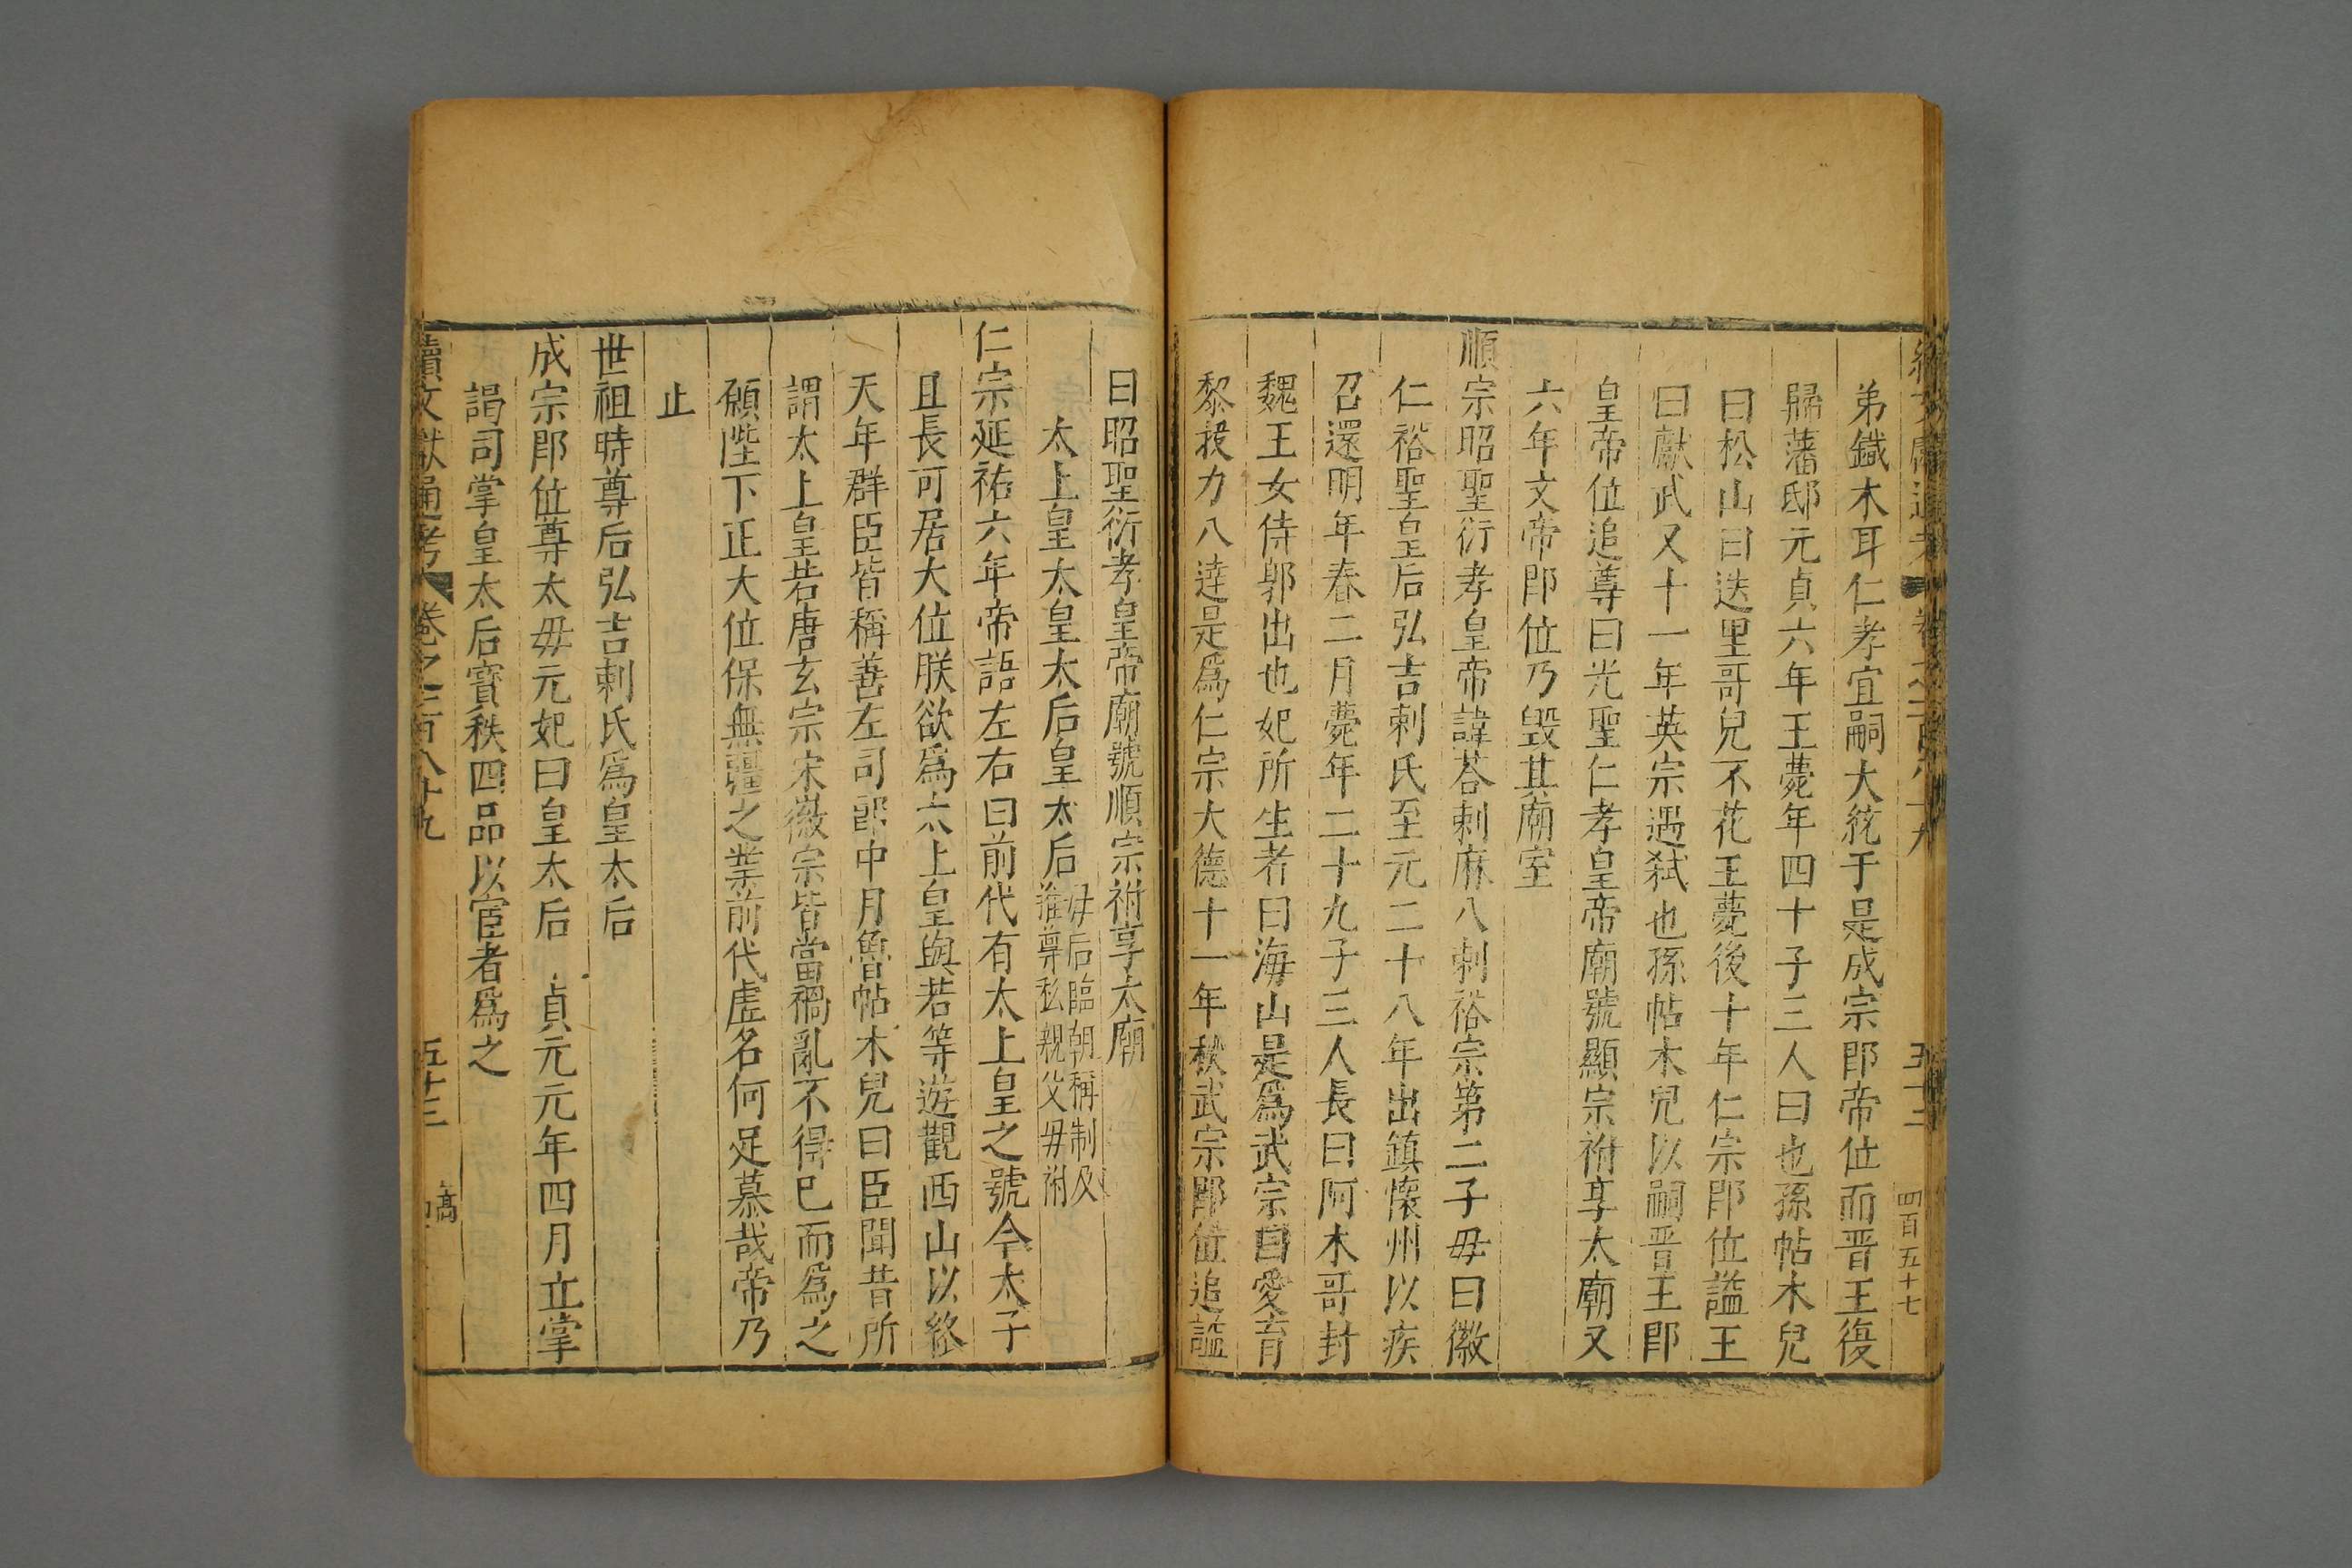 弟鐡木耳仁孝宜嗣大統于是成宗即帝位而晋王復
歸藩邸元貞六年王薨年四十子三人曰也孫帖木兒
曰松山曰迭里哥兒不花王薨後十年仁宗即位謚王
曰獻武又十一年英宗遇弑也孫帖木兒以嗣晋王即
皇帝位追尊曰光聖仁孝皇帝廟號顯宗祔享太廟又
六年文帝即位乃毀其廟室
順宗昭聖衍孝皇帝諱荅剌麻八剌裕宗第二子毋曰徽
仁裕聖皇后弘吉剌氏至元二十八年出鎮懷州以疾
召還明年春二月薨年二十九子三人長曰阿木哥封
魏王女侍郭出也妃所生者曰海山是爲武宗曰愛育
黎拔力八達是爲仁宗大德十一年秋武宗即位追謚
曰昭聖衍孝皇帝廟號順宗祔享太廟
太上皇太皇太后皇太后
毋后臨朝稱制及
推尊私親父毋附
仁宗延祐六年帝語左右曰前代有太上皇之號今太子
且長可居大位朕欲爲太上皇與若等遊觀西山以終
天年群臣皆稱善左司郎中月魯帖木兒曰臣聞昔所
謂太上皇若唐玄宗宋徽宗皆當禍亂不得巳而爲之
願陛下正大位保無疆之業前代虚名何足慕哉帝乃
止
世祖時尊后弘吉剌氏爲皇太后
成宗即位尊太毋元妃曰皇太后 貞元元年四月立掌
謁司掌皇太后寳秩四品以宦者爲之
續文獻通考 卷之一百八十九 五十三
四百五十七